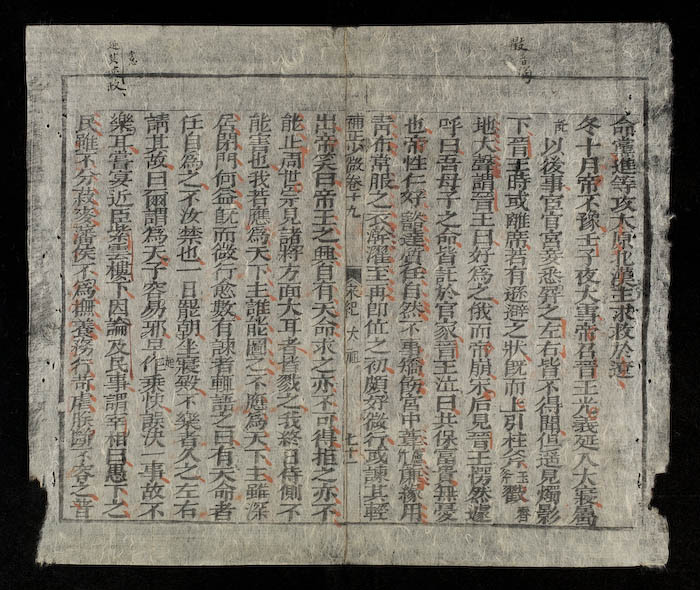 命黨進等攻太原北漢主求救於遼
冬十月帝不豫壬子夜大雪帝召晉王光義延入大寢屬
以後事宦官宮妾悉屏之左右皆不得聞但遙見燭影
下晉王時或離席若有遜避之狀旣而上引柱斧戳
地大聲謂晉王曰好爲之俄而帝崩宋后見晉王愕然遽
呼曰吾母子之命皆託於官家晉王泣曰共保富貴無憂
也帝性仁好豁達質任自然不事矯飾宮中葦簾緣用
靑布常服之衣澣濯至再卽位之初頗好微行或諫其輕
補正少微卷十九 宋紀 太祖 七十一
出帝笑曰帝王之興自有天命求之亦不可得拒之亦不
能止周世宗見諸將方面大耳者皆殺之我終日侍側不
能害也我若應爲天下主誰能圖之不應爲天下主雖深
居閉門何益旣而微行愈數有諫者輒語之曰有天命者
任自爲之不汝禁也一日罷朝坐寢殿不樂者久之左右
請其故曰爾謂爲天子容易邪早作乘快誤決一事故不
樂耳嘗宴近臣紫雲樓下因論及民事謂宰相曰愚下之
民雖不分菽麥藩侯不爲撫養務行苛虐朕斷不容之昔